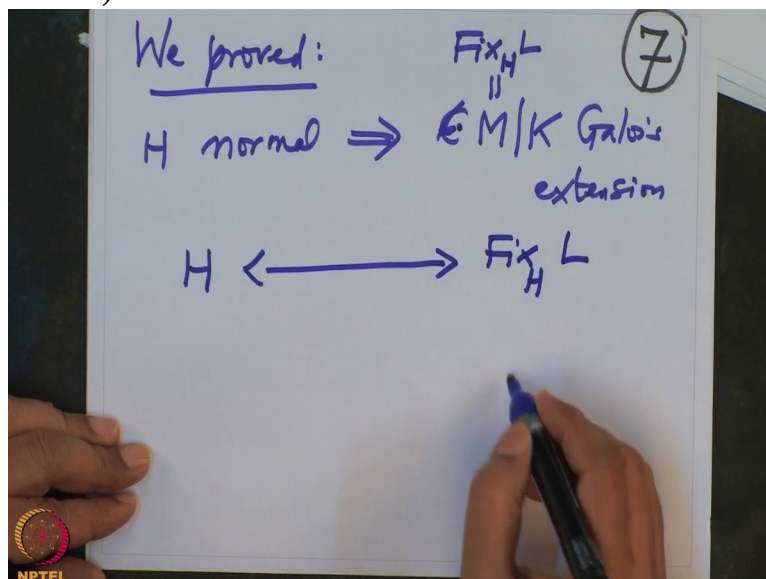 We proved:
Fix_H L
(7)
||
H normal ⇒ M|K Galois
extension
H ⟷ Fix_H L
NPTEL